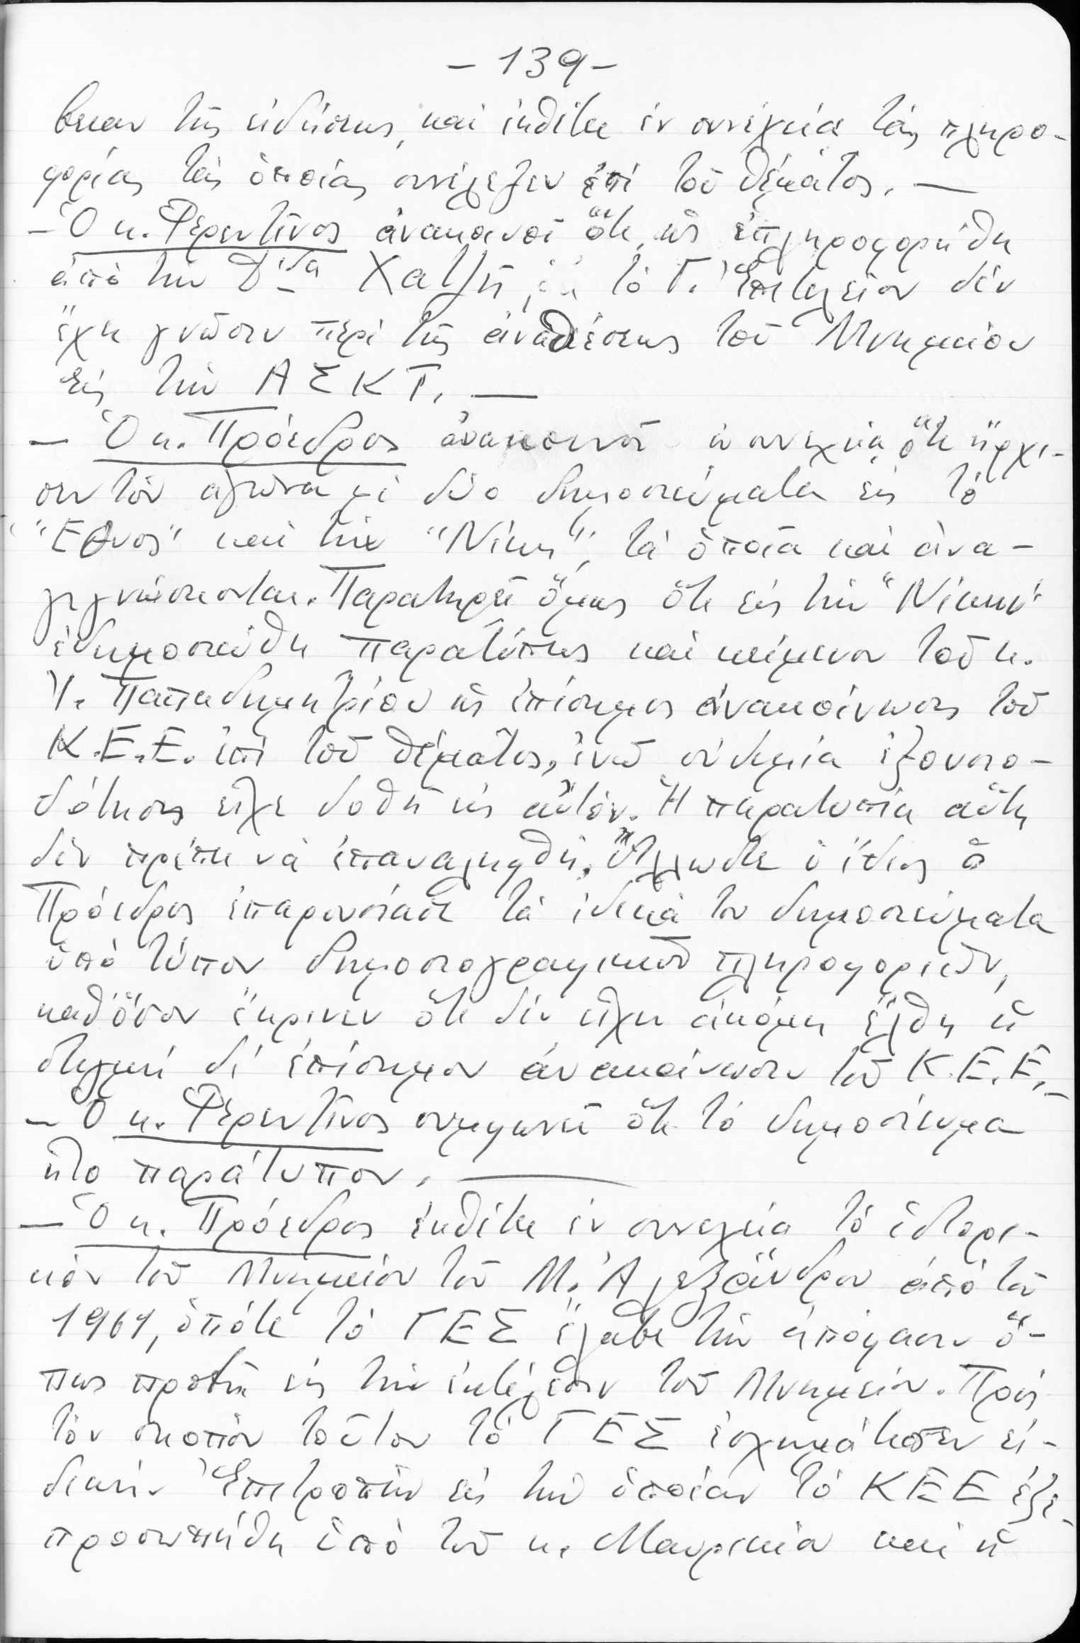 - 139 -
τῆς εἰδήσεως, καί ἐκθέτει ἐν συνεχείᾳ τάς πληρο-
φορίας τάς ὁποίας συνέλεξεν ἐπί τοῦ θέματος. —
- Ὁ κ. Φερεντῖνος ἀνακοινοῖ ὅτι, ὡς ἐπληροφορήθη
ἀπό τήν Δ/ίδα Χατζῆ, τό Γ. Ἐπιτελεῖον δέν
ἔχει γνῶσιν περί τῆς ἀναθέσεως τοῦ Μνημείου
εἰς τήν ΑΣΚΤ. —
- Ὁ κ. Πρόεδρος ἀνακοινοῖ ἐν συνεχείᾳ ὅτι ἤρχι-
σεν τόν ἀγῶνα μέ δύο δημοσιεύματα εἰς τό
"Εθνος" καί τήν "Νίκην", τά ὁποῖα καί ἀνα-
γιγνώσκονται. Παρατηρεῖ ὅμως ὅτι εἰς τήν "Νίκην"
ἐδημοσιεύθη παρατύπως καί κείμενον τοῦ κ.
Ι. Παπαδημητρίου ὡς ἐπίσημος ἀνακοίνωσις τοῦ
Κ.Ε.Ε. ἐπί τοῦ θέματος, ἐνῶ οὐδεμία ἐξουσιο-
δότησις εἶχε δοθῆ εἰς αὐτόν. Ἡ παρατυπία αὕτη
δέν πρέπει νά ἐπαναληφθῇ. Ἄλλωστε ὁ ἴδιος ὁ
Πρόεδρος ἐπαρουσίασε τά ἰδικά του δημοσιεύματα
ὑπό τύπον δημοσιογραφικῶν πληροφοριῶν,
καθόσον ἔκρινεν ὅτι δέν εἶχεν ἀκόμη ἔλθη ἡ
στιγμή δι' ἐπίσημον ἀνακοίνωσιν τοῦ Κ.Ε.Ε. -
- Ὁ κ. Φερεντῖνος συμφωνεῖ ὅτι τό δημοσίευμα
ἦτο παράτυπον. —
- Ὁ κ. Πρόεδρος ἐκθέτει ἐν συνεχείᾳ τό ἱστορι-
κόν τοῦ Μνημείου τοῦ Μ. Ἀλεξάνδρου ἀπό τοῦ
1961, ὁπότε τό ΓΕΣ ἔλαβε τήν ἀπόφασιν ὅ-
πως προβῆ εἰς τήν ἐκτέλεσιν τοῦ Μνημείου. Πρός
τόν σκοπόν τοῦτον τό ΓΕΣ ἐσχημάτισεν εἰ-
δικήν Ἐπιτροπήν εἰς τήν ὁποίαν τό ΚΕΕ ἐξε-
προσωπήθη ὑπό τοῦ κ. Μαυρικίου καί ἡ